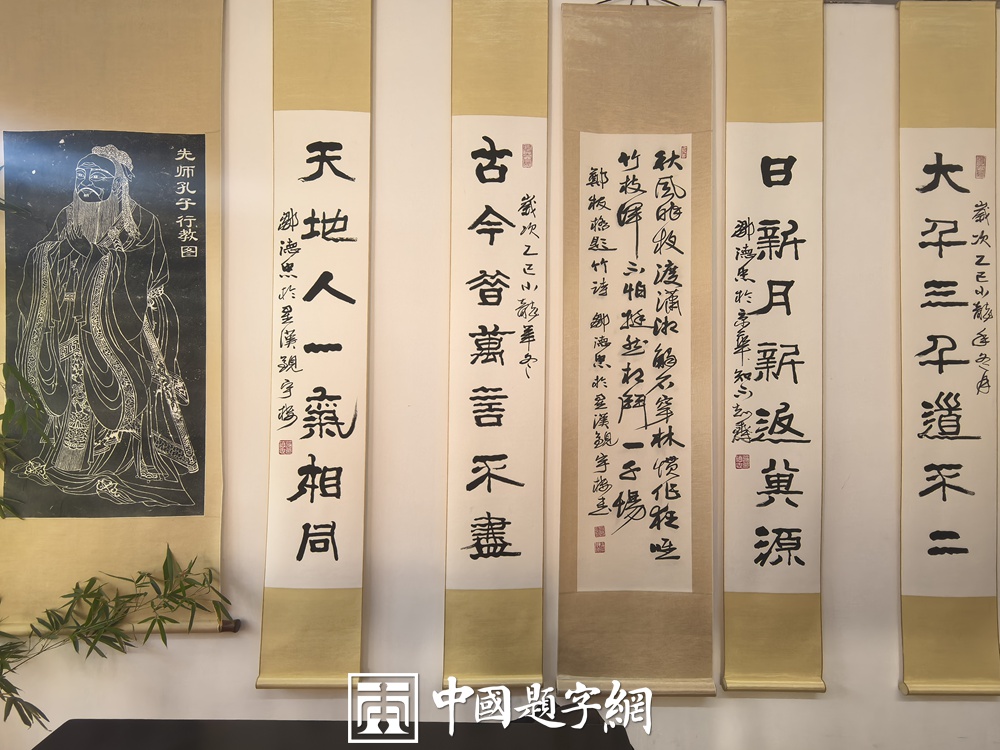 大千三千道不二
歲次乙巳小龍年冬月
日新月新返真源
鄒德忠於京華知不知齋
秋風昨夜渡瀟湘觸石穿林慣作狂唯
竹枝渾不怕挺然相鬥一千場
鄭板橋題竹詩 鄒德忠於星漢觀宇樓書
歲次乙巳小龍年冬
古今萬言不盡
天地人一氣相同
鄒德忠於星漢觀宇樓
先师孔子行教图
中國題字網